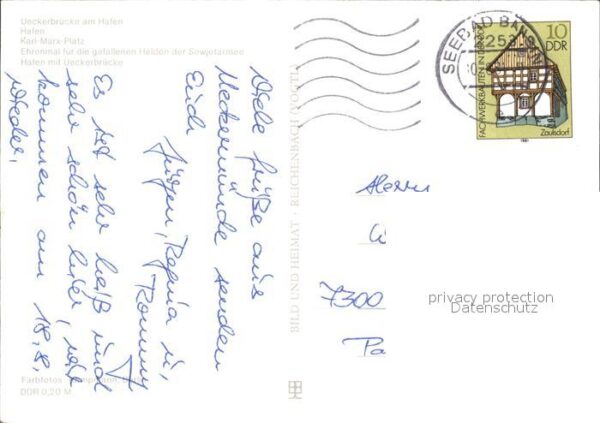 Ueckerbrücke am Hafen
Hafen
Karl-Marx-Platz
Ehrenmal für die gefallenen Helden der Sowjetarmee
Hafen mit Ueckerbrücke
Viele Grüße aus
Ueckermünde senden
Euch
Jürgen, Regina u.
Ronny
Es ist sehr heiß und
sehr schön hier, wir
kommen am 18.8.
wieder.
Farbfotos
DDR 0,20 M
BILD UND HEIMAT · REICHENBACH (VOGTL)
SEEBAD BANSIN
253
10
DDR
FACHWERKBAUTEN IN DER DDR
Zaulsdorf
1981
Herrn
W
7300
Pa
privacy protection
Datenschutz